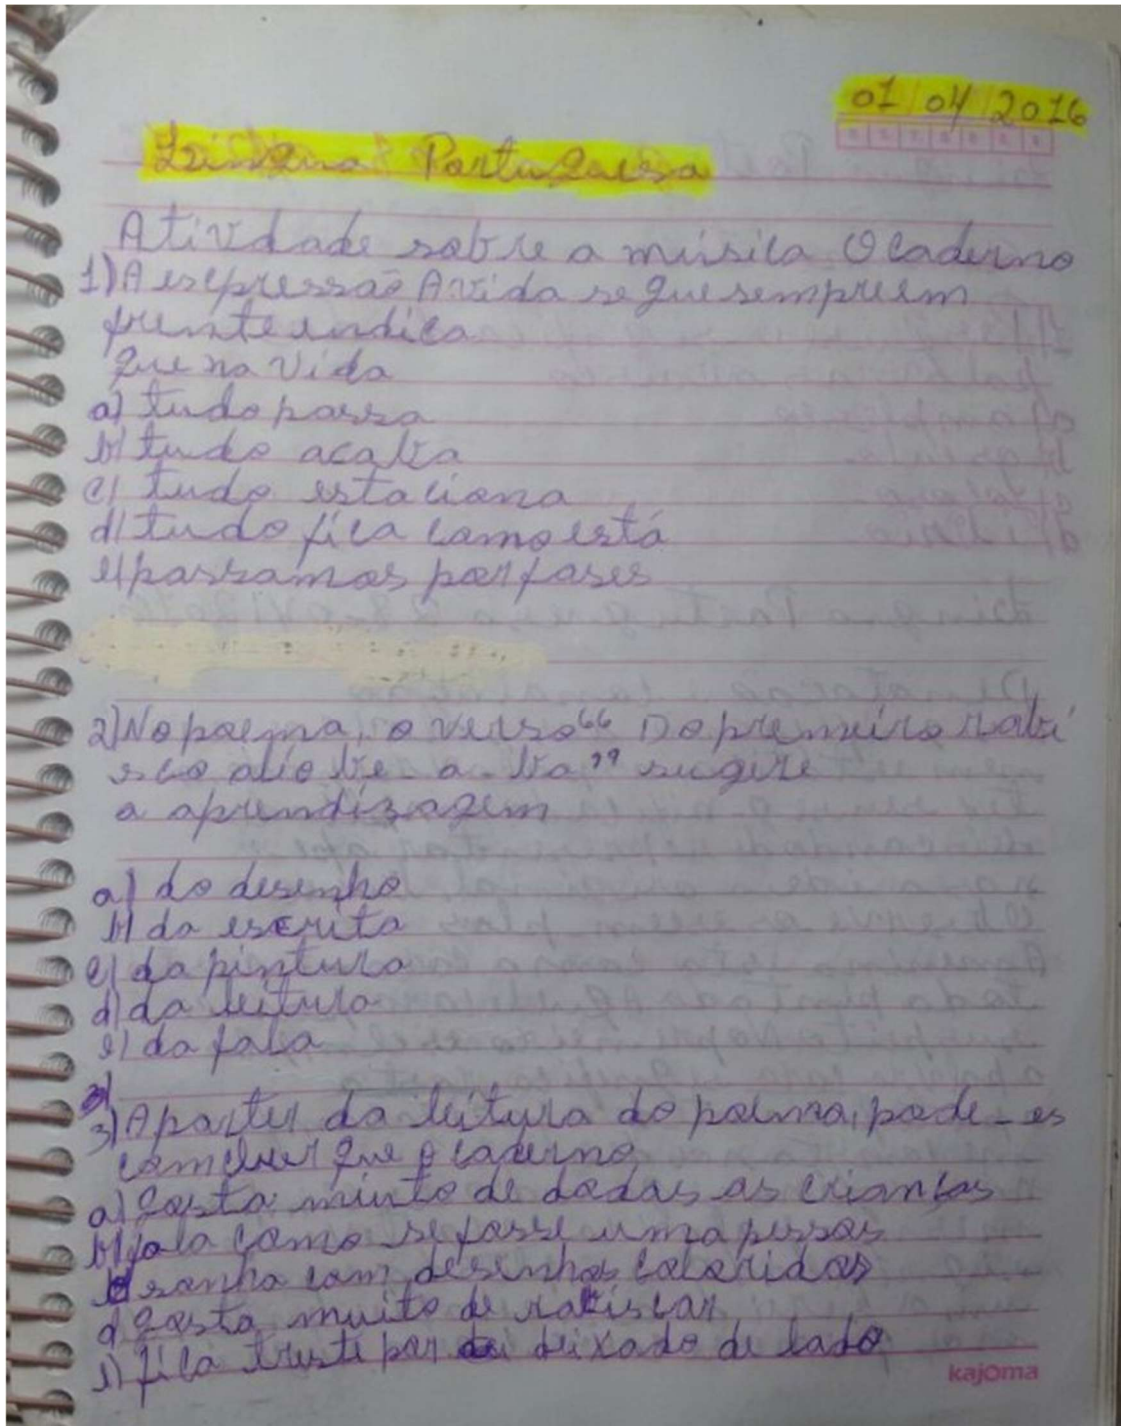 01/04/2016
Língua Portuguesa
Atividade sobre a música O Caderno
1) A expressão A vida segue sempre em
frente indica
que na vida
a) tudo passa
b) tudo acaba
c) tudo estaciona
d) tudo fica como está
e) passamos por fases
2) No poema, o verso " Do premeiro rabi
sco até o be-a-ba" sugere
a aprendizagem
a) do desenho
b) da escrita
c) da pintura
d) da leitura
e) da fala
3)
3) A parter da leitura do poema, pode-es
comcluer que o caderno
a) gosta minto de dodas as criancas
b) fala como se fosse uma pessoas
sonha com desenhos coloridos
d gosta muito de rabiscar
e) fica triste por deixado de lado
kajoma